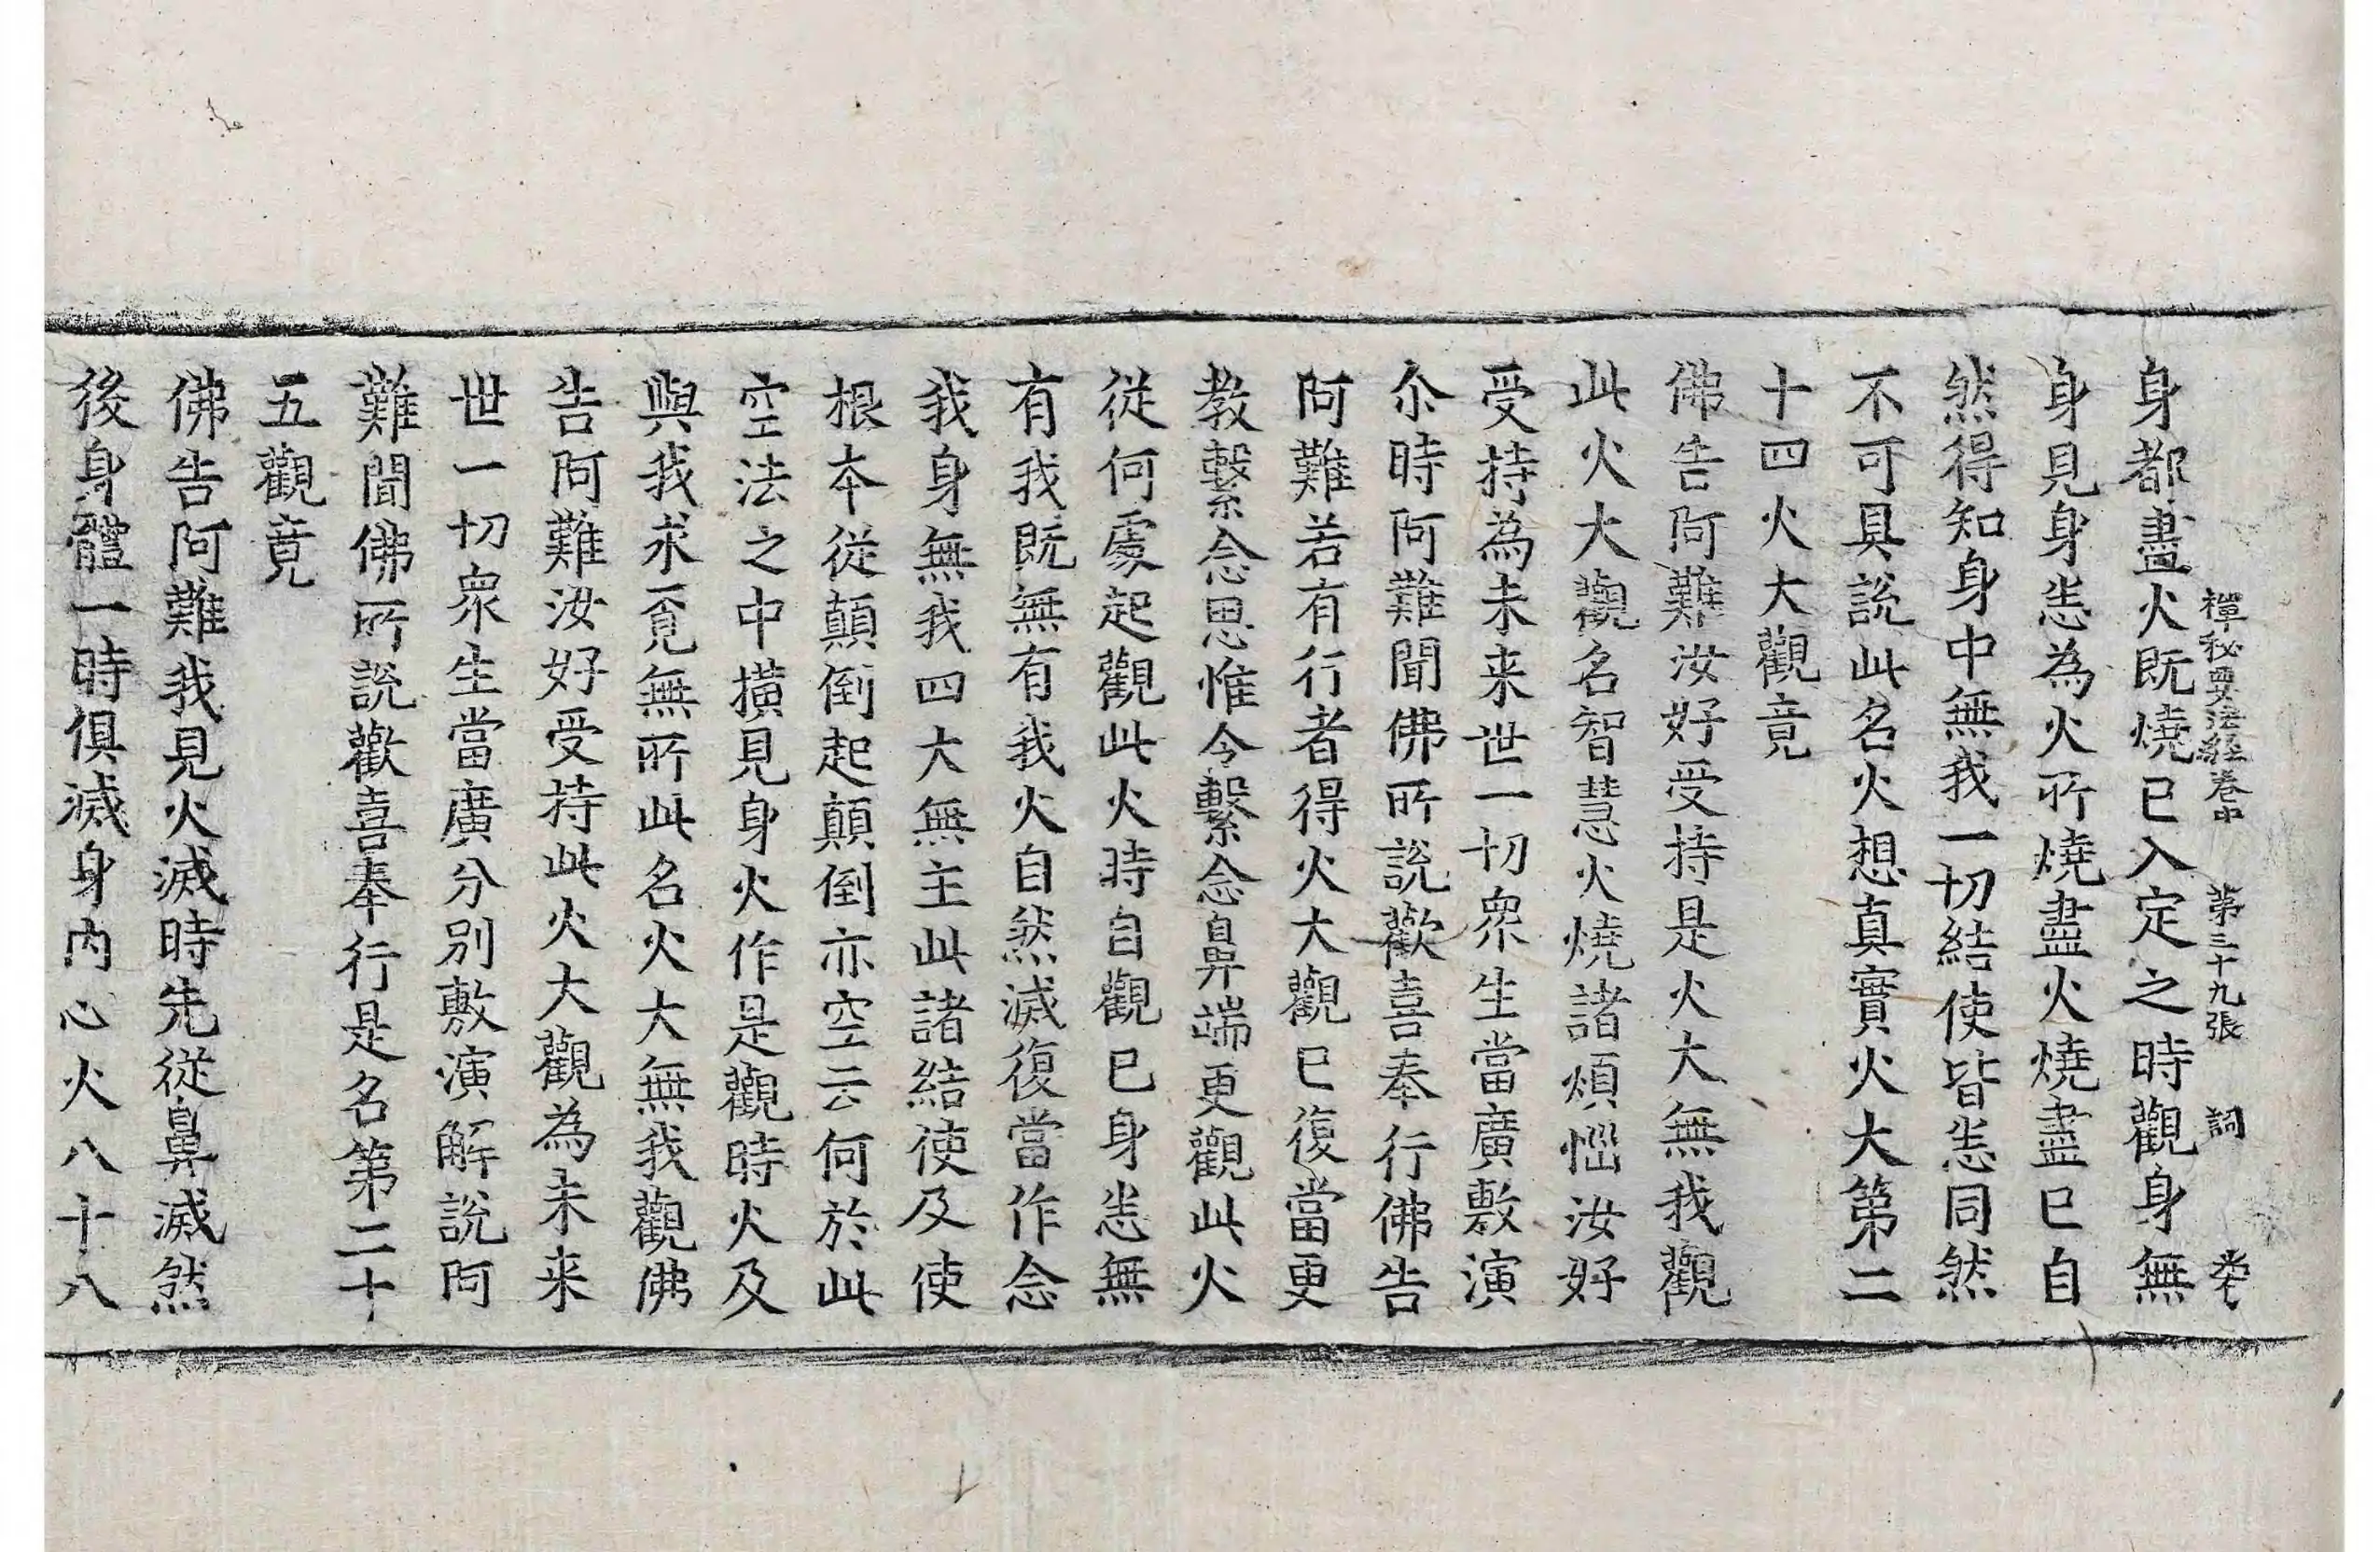 禪秘要法經卷中　第三十九張　詞
身都盡火既燒已入定之時觀身無
身見身悉為火所燒盡火燒盡已自
然得知身中無我一切結使皆悉同然
不可具說此名火想真實火大第二
十四火大觀竟
佛告阿難汝好受持是火大無我觀
此火大觀名智慧火燒諸煩惱汝好
受持為未来世一切衆生當廣敷演
尒時阿難聞佛所說歡喜奉行佛告
阿難若有行者得火大觀已復當更
教繫念思惟令繫念鼻端更觀此火
從何處起觀此火時自觀已身悉無
有我既無有我火自然滅復當作念
我身無我四大無主此諸結使及使
根本從顛倒起顛倒亦空云何於此
空法之中橫見身火作是觀時火及
與我求覓無所此名火大無我觀佛
告阿難汝好受持此火大觀為未来
世一切衆生當廣分別敷演解說阿
難聞佛所說歡喜奉行是名第二十
五觀竟
佛告阿難我見火滅時先從鼻滅然
後身體一時俱滅身內心火八十八